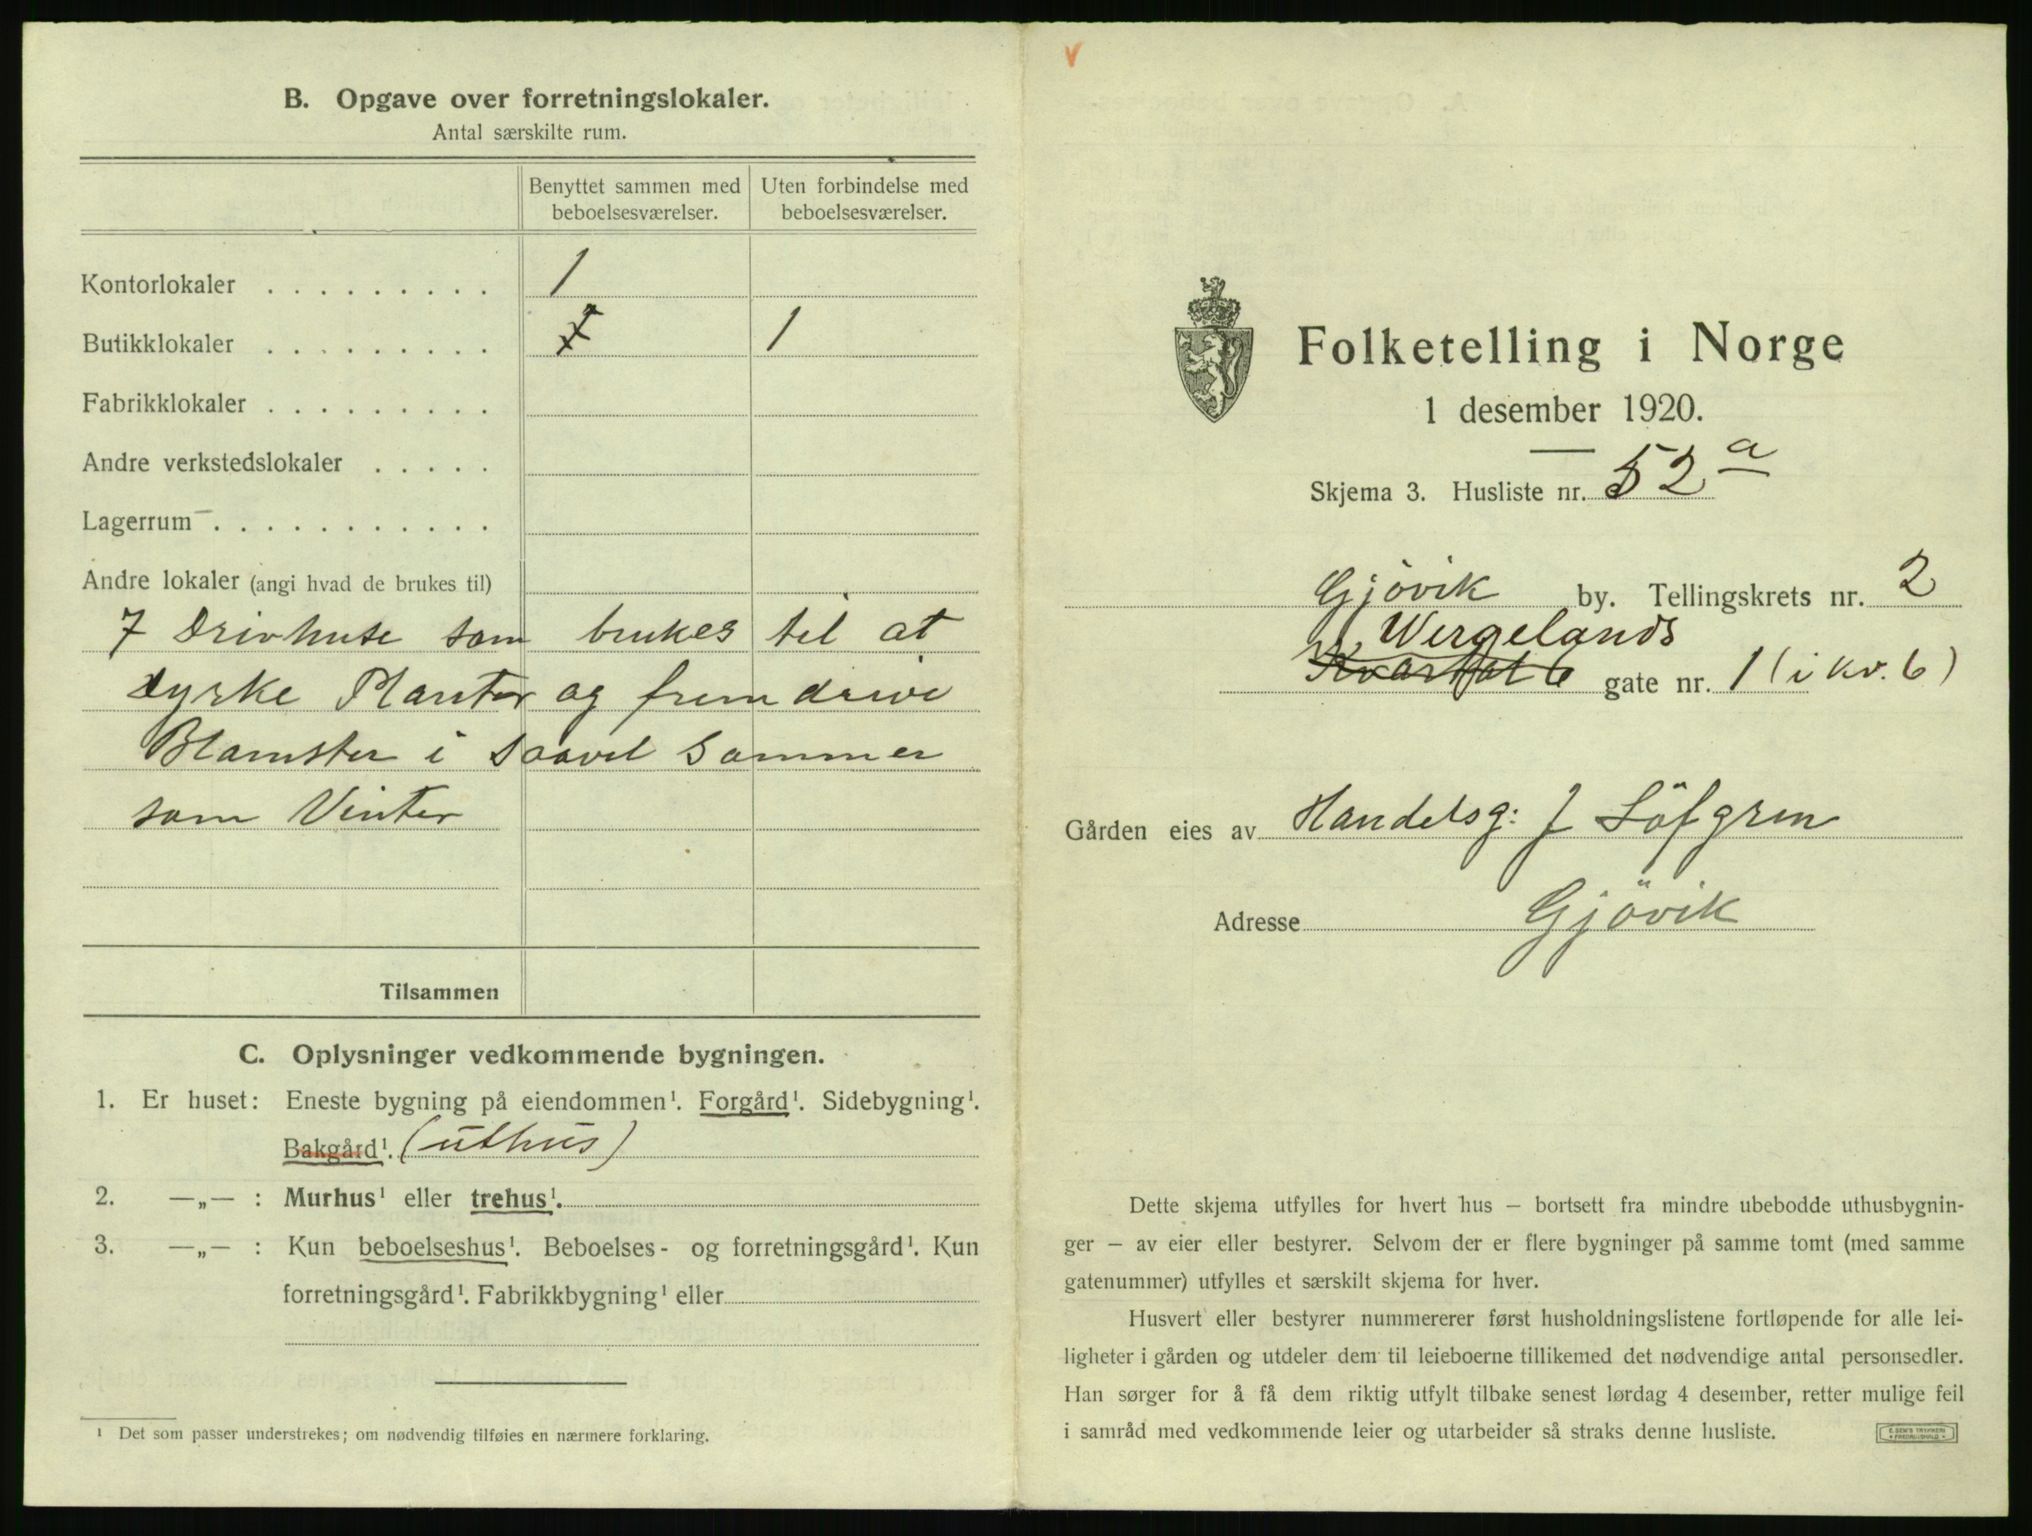 B. Opgave over forretningslokaler.
Antal særskilte rum.
Benyttet sammen med beboelsesværelser.
Uten forbindelse med beboelsesværelser.
Kontorlokaler . . . . . . . . . 1
Butikklokaler . . . . . . . . . 1
Fabrikklokaler . . . . . . . . .
Andre verkstedslokaler . . . . .
Lagerrum . . . . . . . . . . .
Andre lokaler (angi hvad de brukes til)
7 Drivhuse som brukes til at
dyrke Planter og fremdrive
Blomster i saavel Sommer
som Vinter
Tilsammen
C. Oplysninger vedkommende bygningen.
1. Er huset: Eneste bygning på eiendommen¹. Forgård¹. Sidebygning¹.
Bakgård¹. (uthus)
2. —„— : Murhus¹ eller trehus¹.
3. —„— : Kun beboelseshus¹. Beboelses- og forretningsgård¹. Kun
forretningsgård¹. Fabrikkbygning¹ eller
¹ Det som passer understrekes; om nødvendig tilføies en nærmere forklaring.
v
Folketelling i Norge
1 desember 1920.
Skjema 3. Husliste nr. 52 a
Gjövik by. Tellingskrets nr. 2
Wergelands
Kvartal 6 gate nr. 1 (i kv. 6)
Gården eies av Handelsg: J Löfgren
Adresse Gjövik
Dette skjema utfylles for hvert hus — bortsett fra mindre ubebodde uthusbygnin-
ger — av eier eller bestyrer. Selvom der er flere bygninger på samme tomt (med samme
gatenummer) utfylles et særskilt skjema for hver.
Husvert eller bestyrer nummererer først husholdningslistene fortløpende for alle lei-
ligheter i gården og utdeler dem til leieboerne tillikemed det nødvendige antal personsedler.
Han sørger for å få dem riktig utfylt tilbake senest lørdag 4 desember, retter mulige feil
i samråd med vedkommende leier og utarbeider så straks denne husliste.